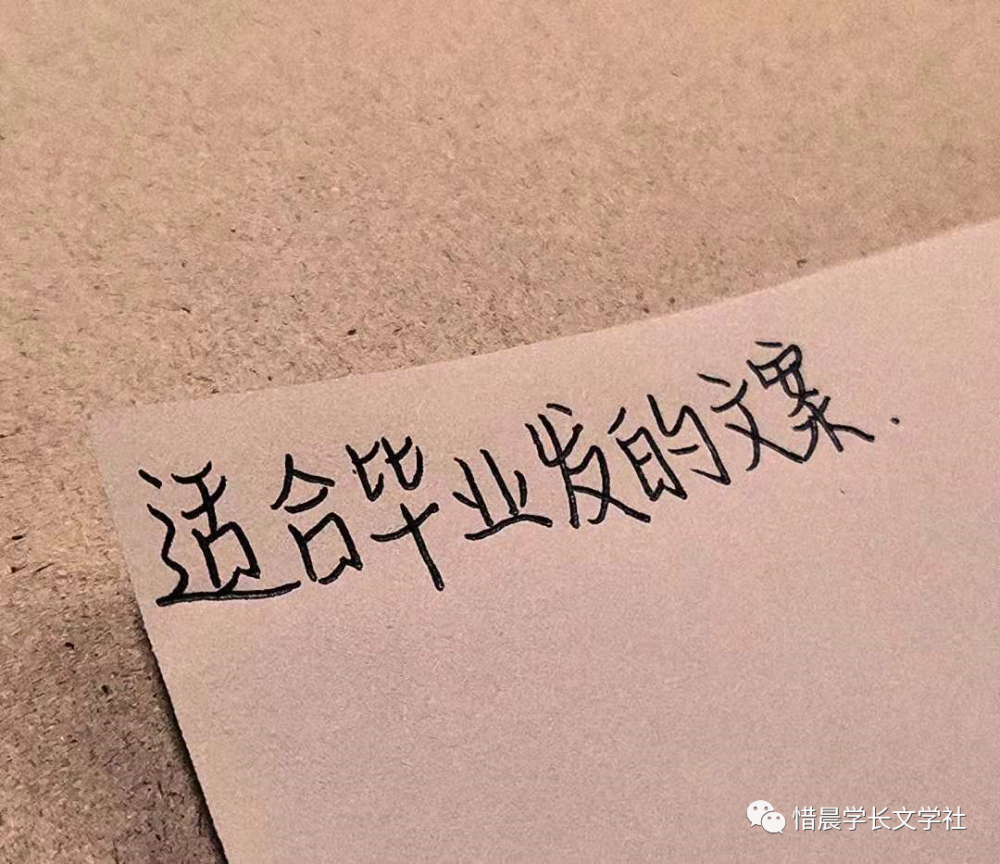 适合毕业发的文案.
惜晨学长文学社